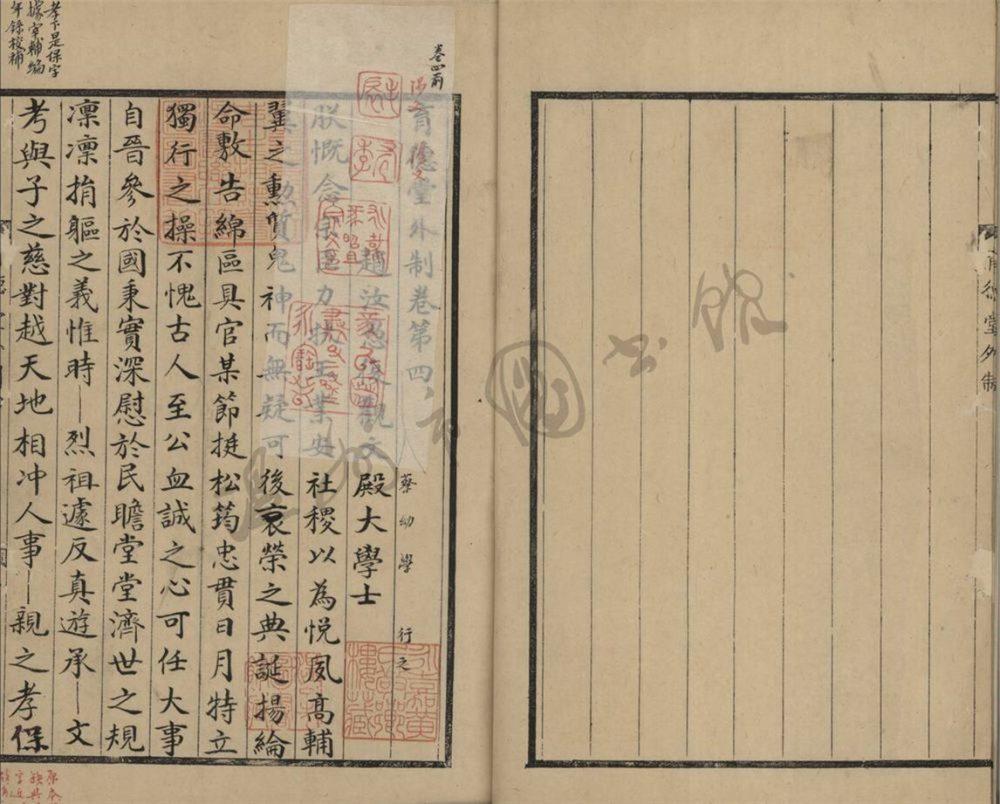 育德堂外制卷第四
蔡幼學 行之
趙汝愚復觀文殿大學士
朕慨念宗臣力扶王業安社稷以為悅夙高輔
翼之勳質鬼神而無疑可後哀榮之典誕揚綸
命敷告綿區具官某節挺松筠忠貫日月特立
獨行之操不愧古人至公血誠之心可任大事
自晉參於國秉實深慰於民瞻堂堂濟世之規
凜凜捐軀之義惟時烈祖遽反真遊承文
考與子之慈對越天地相冲人事親之孝保
卷四前
孝下是保字
據宰輔編
年錄校補
永嘉黃氏
樓藏
育德堂外制
書館